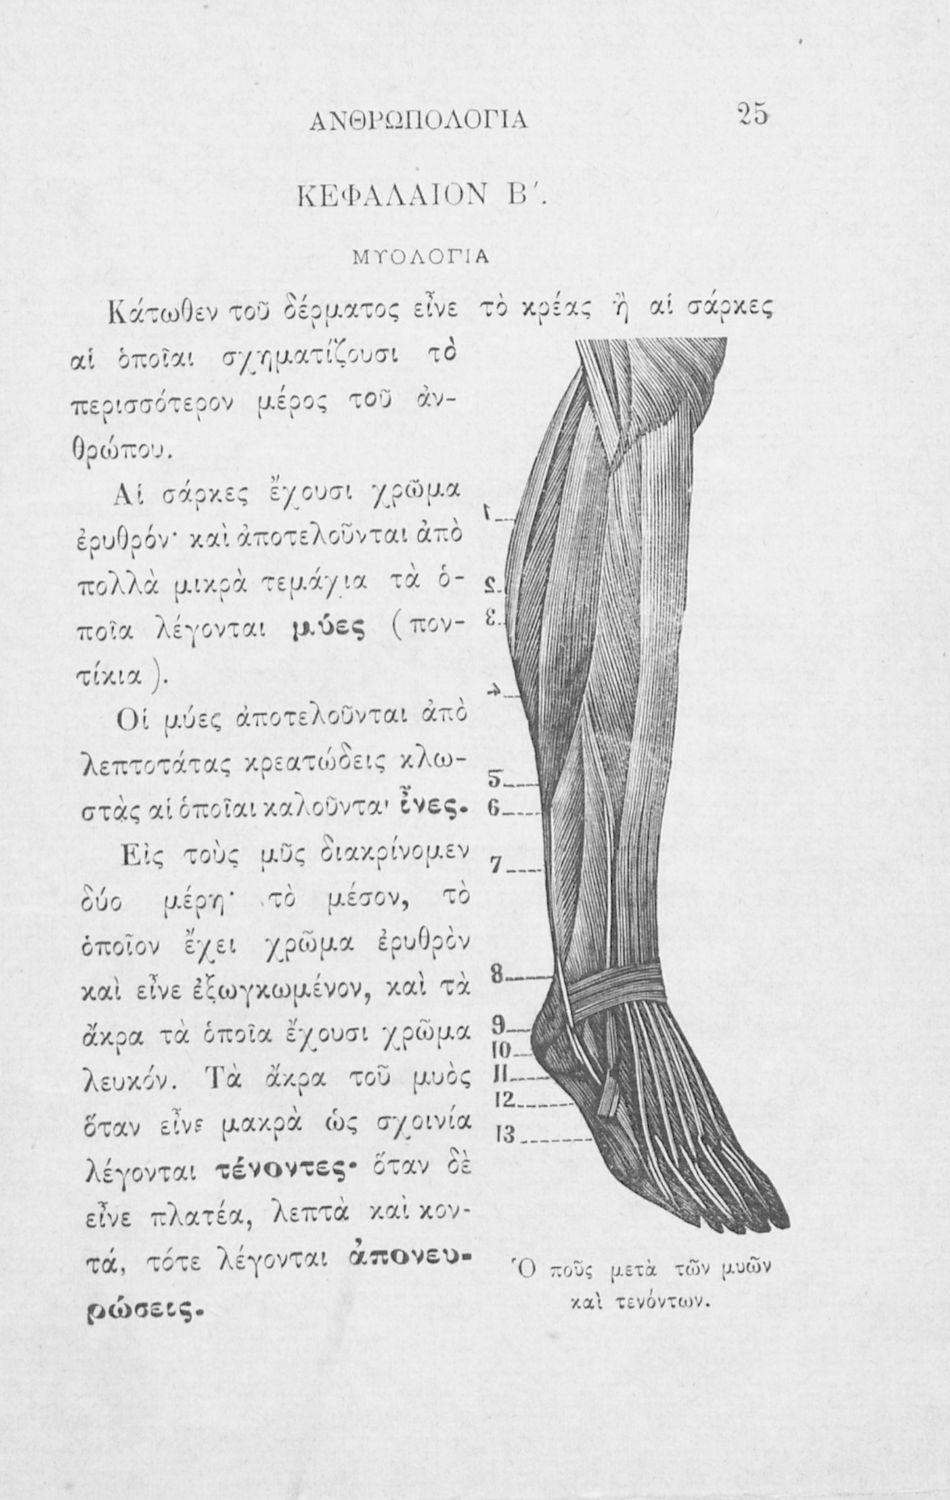 ΑΝΘΡΩΠΟΛΟΓΙΑ 25
ΚΕΦΑΛΑΙΟΝ Β΄.
ΜΥΟΛΟΓΙΑ
Κάτωθεν τοῦ δέρματος εἶνε τὸ κρέας ἢ αἱ σάρκες
αἱ ὁποῖαι σχηματίζουσι τὸ
περισσότερον μέρος τοῦ ἀν-
θρώπου.
Αἱ σάρκες ἔχουσι χρῶμα
ἐρυθρόν· καὶ ἀποτελοῦνται ἀπὸ
πολλὰ μικρὰ τεμάχια τὰ ὁ-
ποῖα λέγονται μύες (πον-
τίκια).
Οἱ μύες ἀποτελοῦνται ἀπὸ
λεπτοτάτας κρεατώδεις κλω-
στὰς αἱ ὁποῖαι καλοῦνται ἶνες.
Εἰς τοὺς μῦς διακρίνομεν
δύο μέρη· τὸ μέσον, τὸ
ὁποῖον ἔχει χρῶμα ἐρυθρὸν
καὶ εἶνε ἐξωγκωμένον, καὶ τὰ
ἄκρα τὰ ὁποῖα ἔχουσι χρῶμα
λευκόν. Τὰ ἄκρα τοῦ μυὸς
ὅταν εἶνε μακρὰ ὡς σχοινία
λέγονται τένοντες· ὅταν δὲ
εἶνε πλατέα, λεπτὰ καὶ κον-
τά, τότε λέγονται ἀπονευ-
ρώσεις.
1
2
3
4
5
6
7
8
9
10
11
12
13
Ὁ ποῦς μετὰ τῶν μυῶν
καὶ τενόντων.